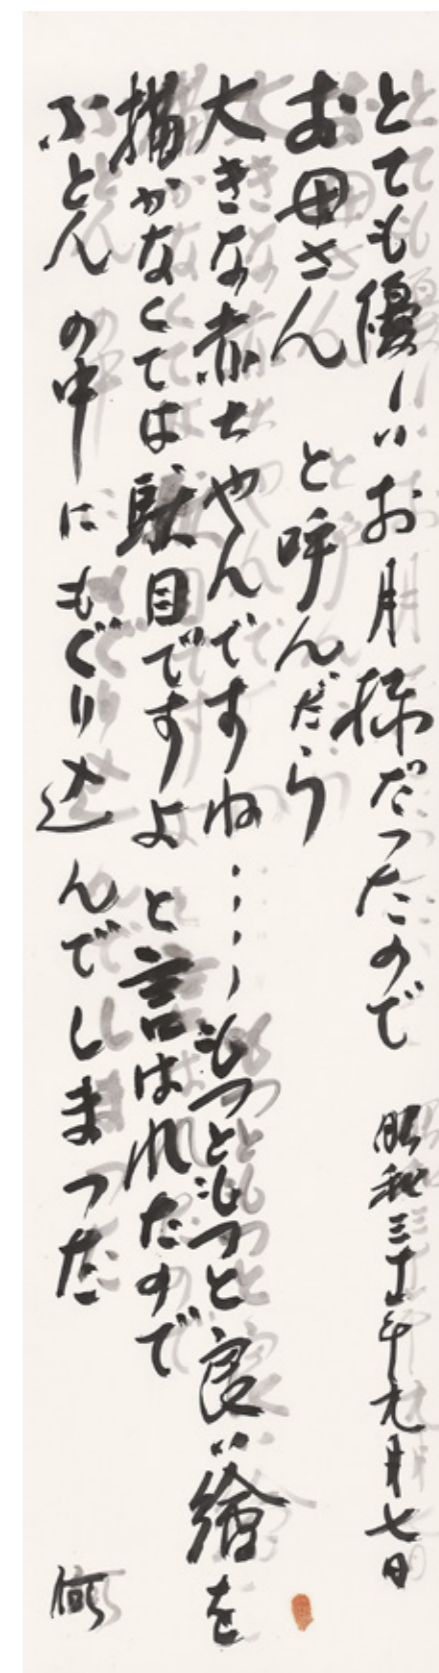 とても優しいお月様だったので
昭和三十年九月七日
お母さん と呼んだら
大きな赤ちやんですね・・・・もつともつと良い繪を
描かなくては駄目ですよ と言はれたので
ふとんの中にもぐり込んでしまつた